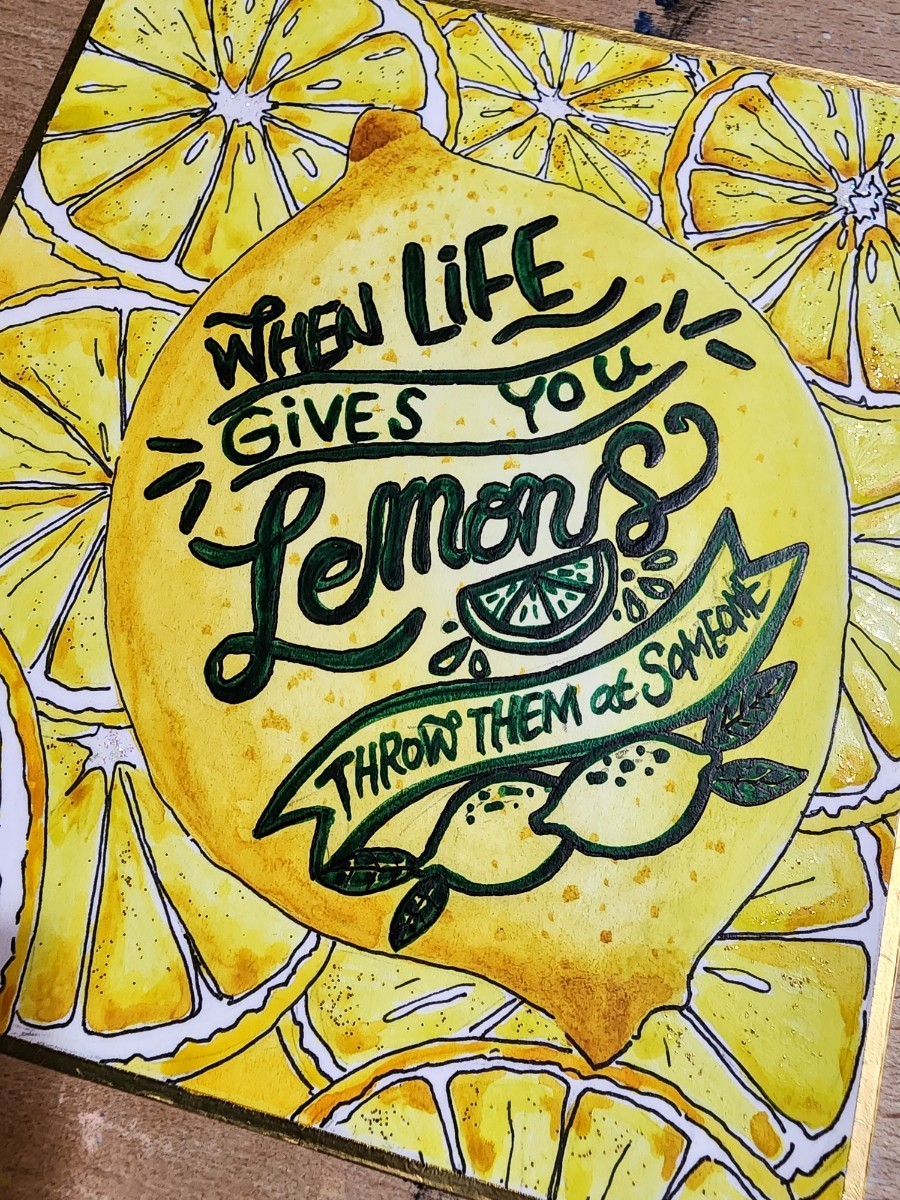 WHEN LiFE
GiVES YOU
Lemons
THROW THEM at SOMEONE